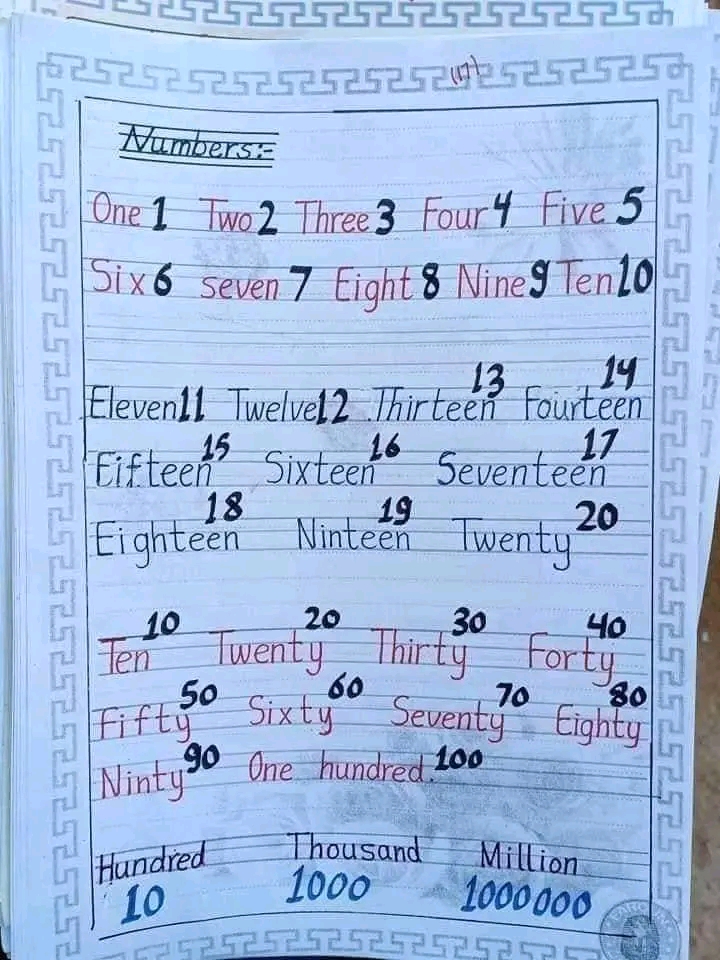 (17)
Numbers:-
One 1 Two 2 Three 3 Four 4 Five 5
Six 6 seven 7 Eight 8 Nine 9 Ten 10
Eleven 11 Twelve 12 Thirteen 13 Fourteen 14
Fifteen 15 Sixteen 16 Seventeen 17
Eighteen 18 Ninteen 19 Twenty 20
Ten 10 Twenty 20 Thirty 30 Forty 40
Fifty 50 Sixty 60 Seventy 70 Eighty 80
Ninty 90 One hundred. 100
Hundred Thousand Million
10 1000 1000000